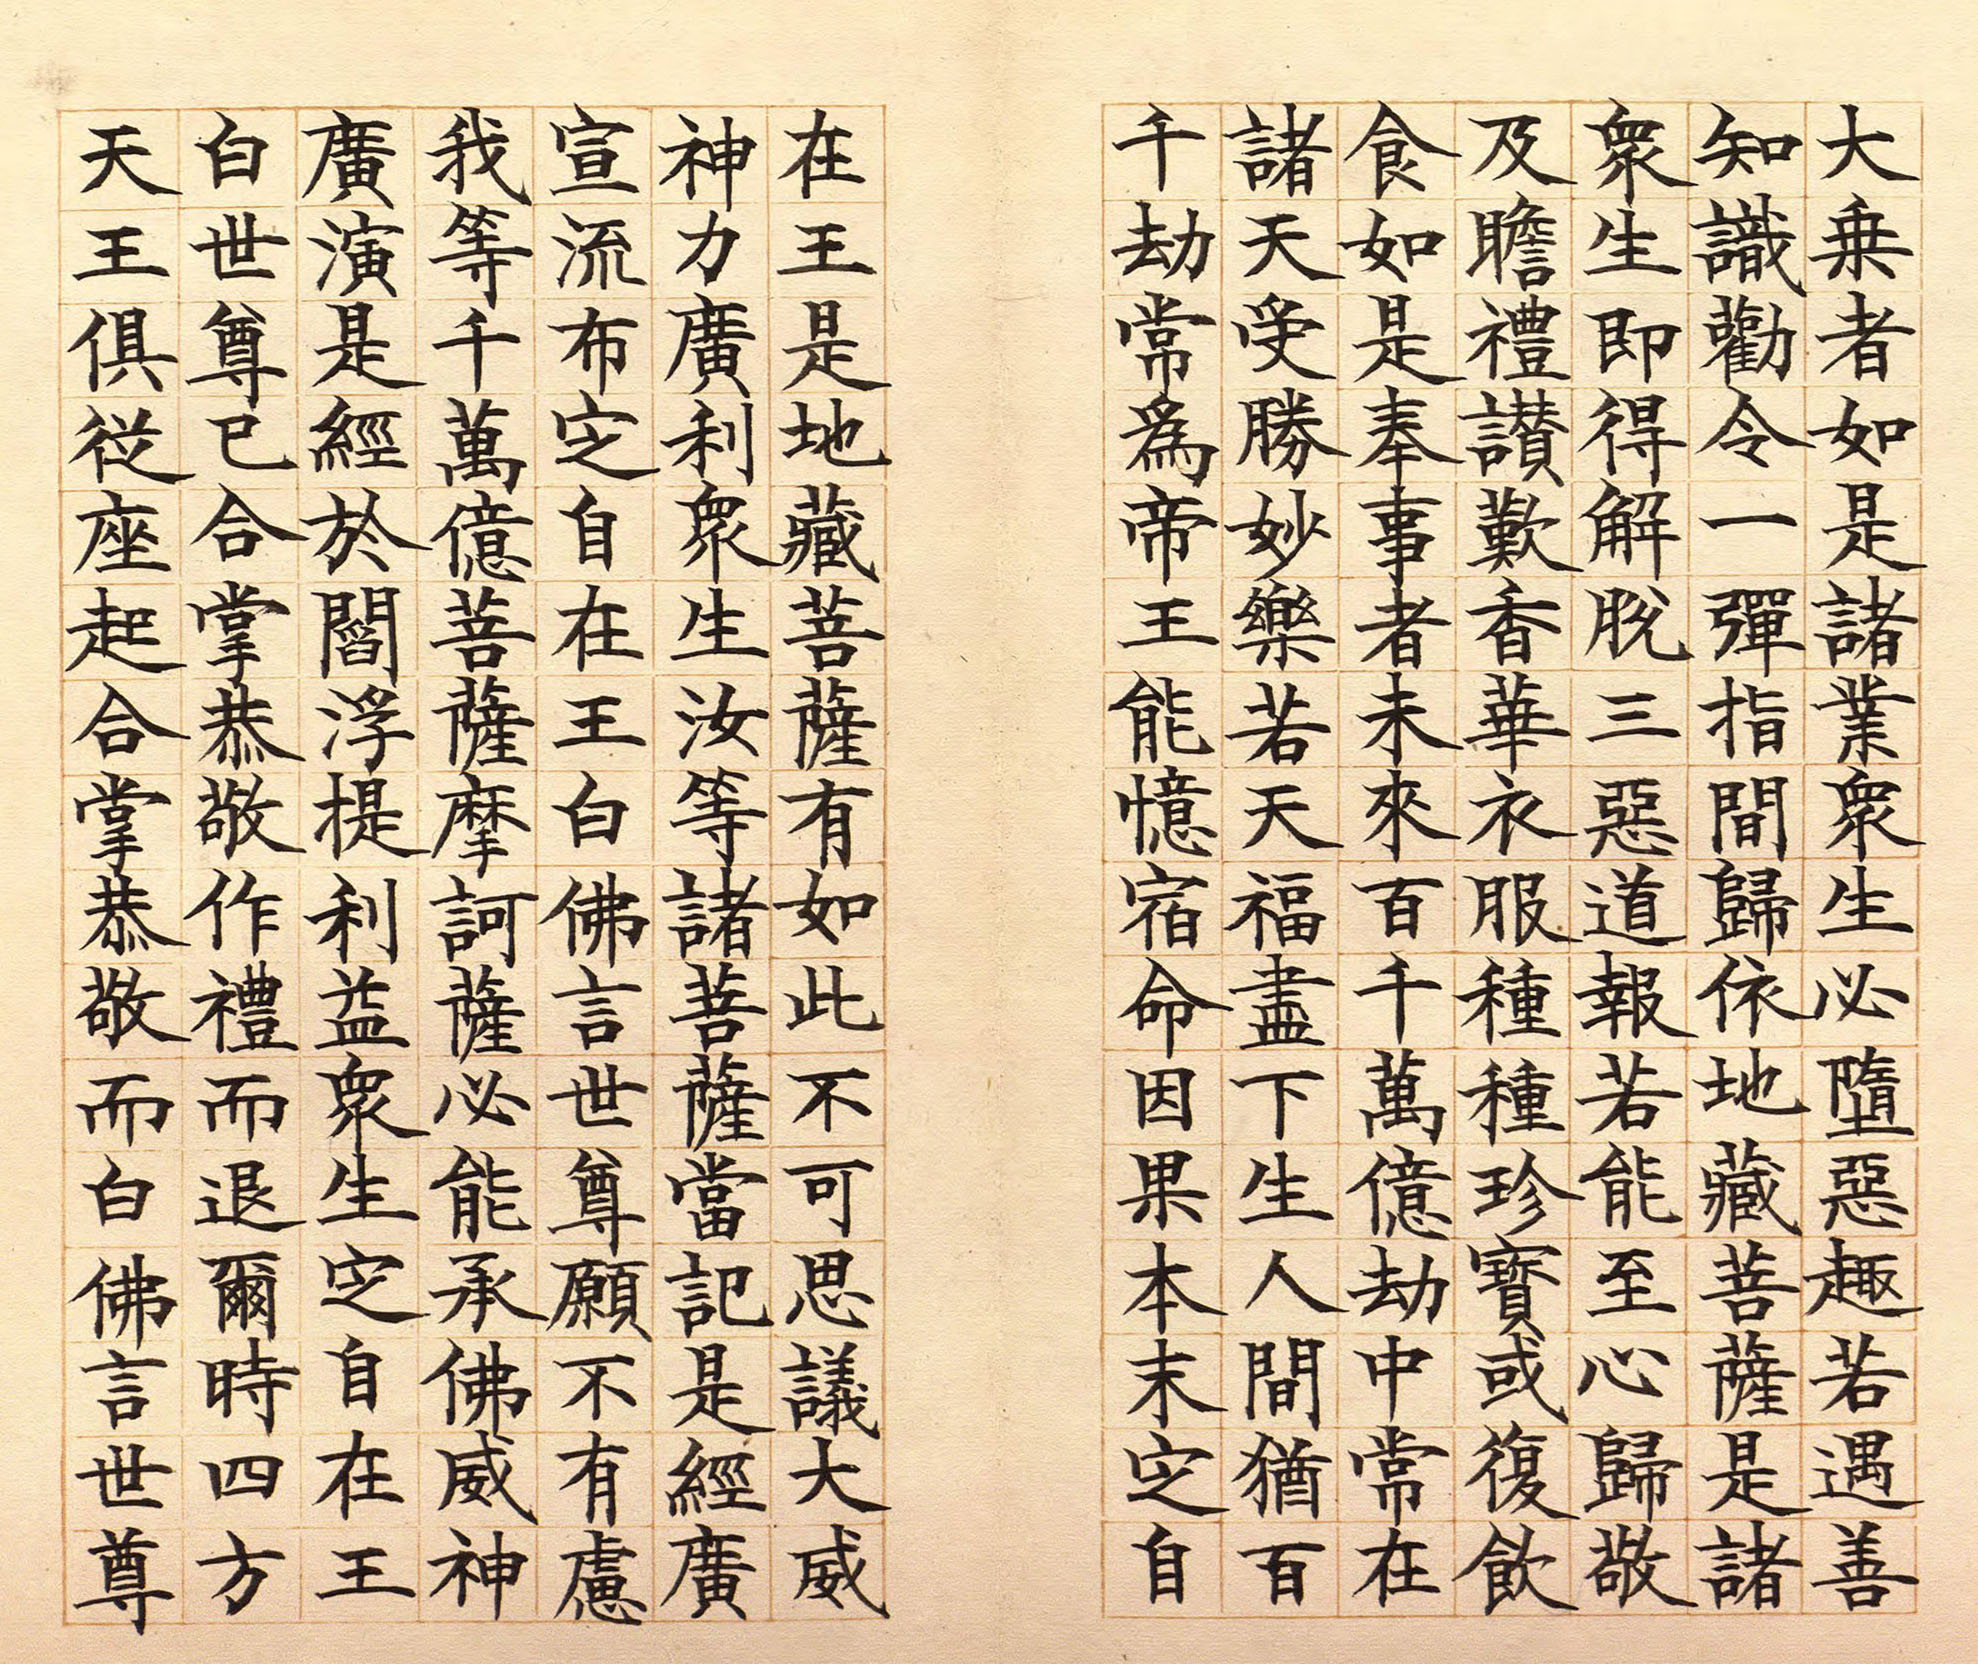 大乗者如是諸業衆生必墮惡趣若遇善
知識勸令一彈指間歸依地藏菩薩是諸
衆生即得解脫三惡道報若能至心歸敬
及瞻禮讃歎香華衣服種種珍寶或復飲
食如是奉事者未來百千萬億劫中常在
諸天受勝妙樂若天福盡下生人間猶百
千劫常爲帝王能憶宿命因果本末定自
在王是地藏菩薩有如此不可思議大威
神力廣利衆生汝等諸菩薩當記是經廣
宣流布定自在王白佛言世尊願不有慮
我等千萬億菩薩摩訶薩必能承佛威神
廣演是經於閻浮提利益衆生定自在王
白世尊已合掌恭敬作禮而退爾時四方
天王俱從座起合掌恭敬而白佛言世尊